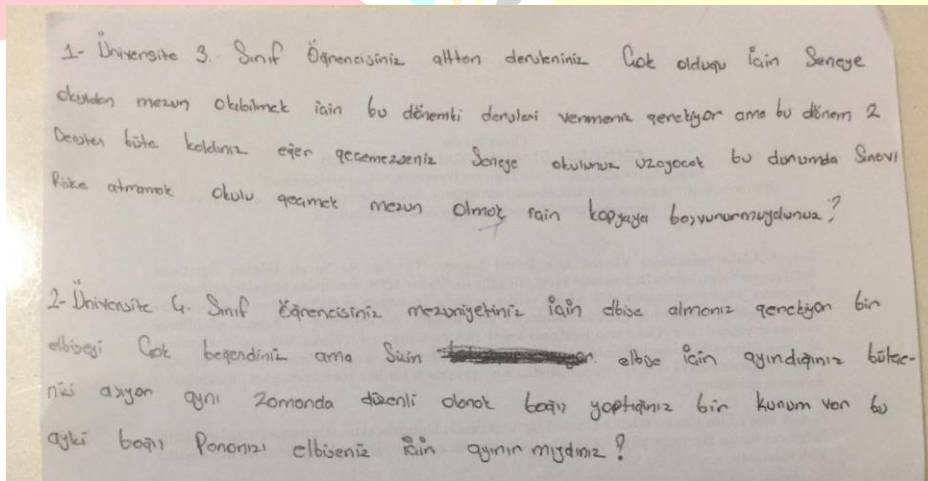 1- Üniversite 3. Sınıf Öğrencisiniz alttan dersleriniz Çok olduğu İçin Seneye
okuldan mezun olabilmek için bu dönemki dersleri vermeniz gerekiyor ama bu dönem 2
Dersten büte kaldınız eğer geçemezseniz Seneye okulunuz uzayacak bu durumda Sınavı
Riske atmamak okulu geçmek mezun olmak için kopyaya başvururmuydunuz?
2- Üniversite 4. Sınıf Öğrencisiniz mezuniyetiniz İçin elbise almanız gerekiyor bir
elbiseyi Çok beğendiniz ama Sizin elbise İçin ayırdığınız bütçe-
nizi aşıyor aynı zamanda düzenli olarak bağış yaptığınız bir kurum var bu
ayki bağış Paranızı elbiseniz İçin ayırır mıydınız?